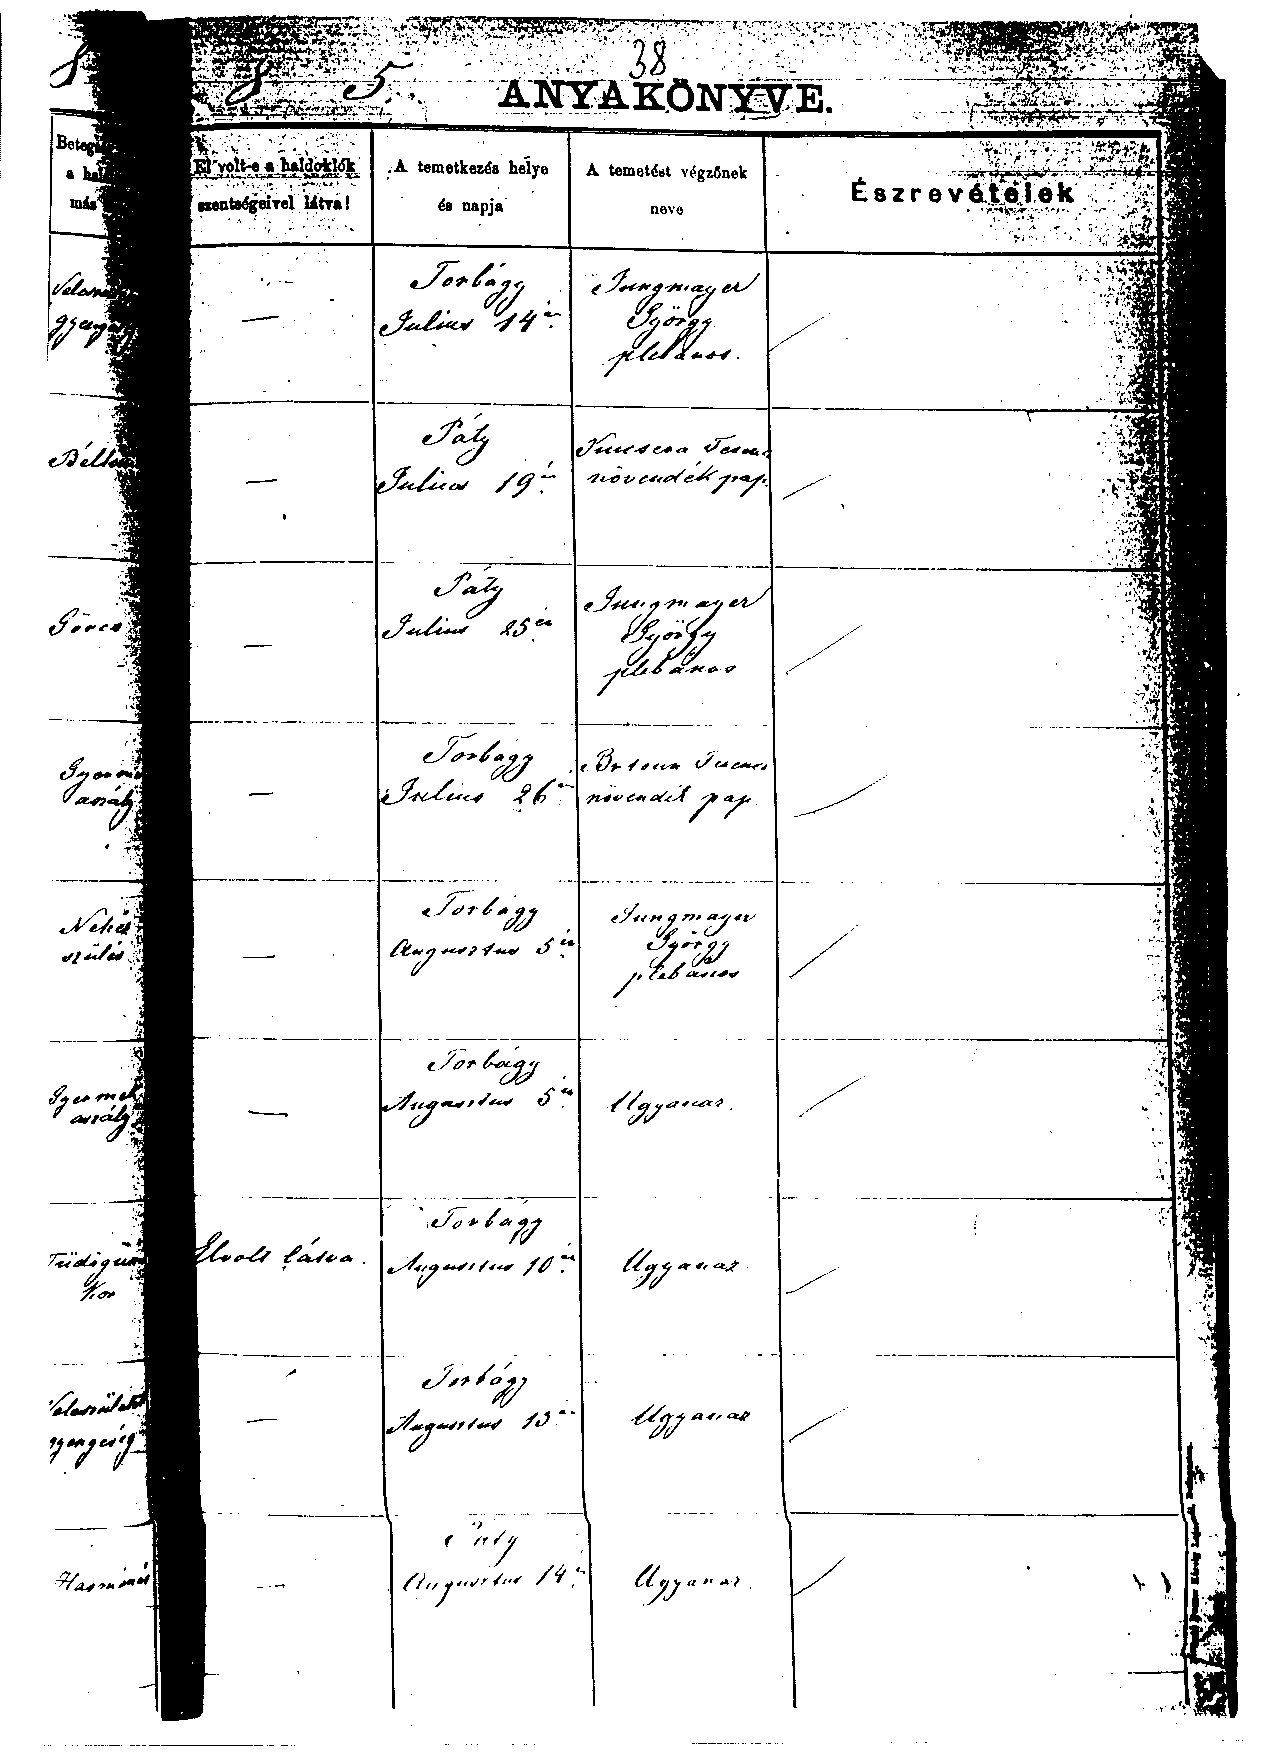 8 8 5.
38
ANYAKÖNYVE.
El volt-e a haldoklók
szentségeivel látva!
A temetkezés helye
és napja
A temetést végzőnek
neve
Észrevételek
—
Torbágy
Julius 14én
Jungmayer
György
plebános.
—
Páty
Julius 19én
növendék pap.
Görcs
—
Páty
Julius 25én
Jungmayer
György
plebános
—
Torbágy
Julius 26án
növendék pap
Nehéz
szülés
—
Torbágy
Augusztus 5én
Jungmayer
György
plebános
Gyermek
aszály
—
Torbágy
Augusztus 5én
Ugyanaz.
kór
Elvolt látva.
Torbágy
Augusztus 10én
Ugyanaz.
Veleszületett
gyengeség
—
Torbágy
Augusztus 13án
Ugyanaz
Hasmenés
—
Páty
Augusztus 14én
Ugyanaz.